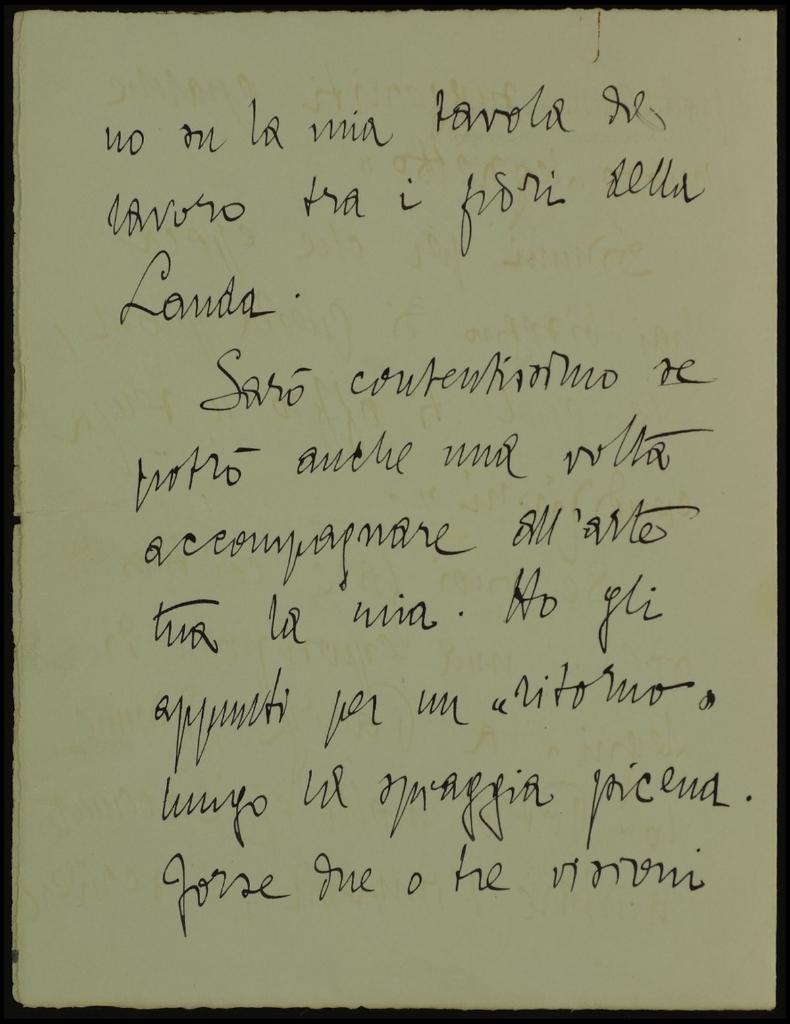 no su la mia tavola di
lavoro tra i fiori della
Landa.
Sarò contentissimo se
potrò anche una volta
accompagnare all'arte
tua la mia. Ho gli
appunti per un "ritorno"
lungo la spiaggia picena.
Forse due o tre visioni